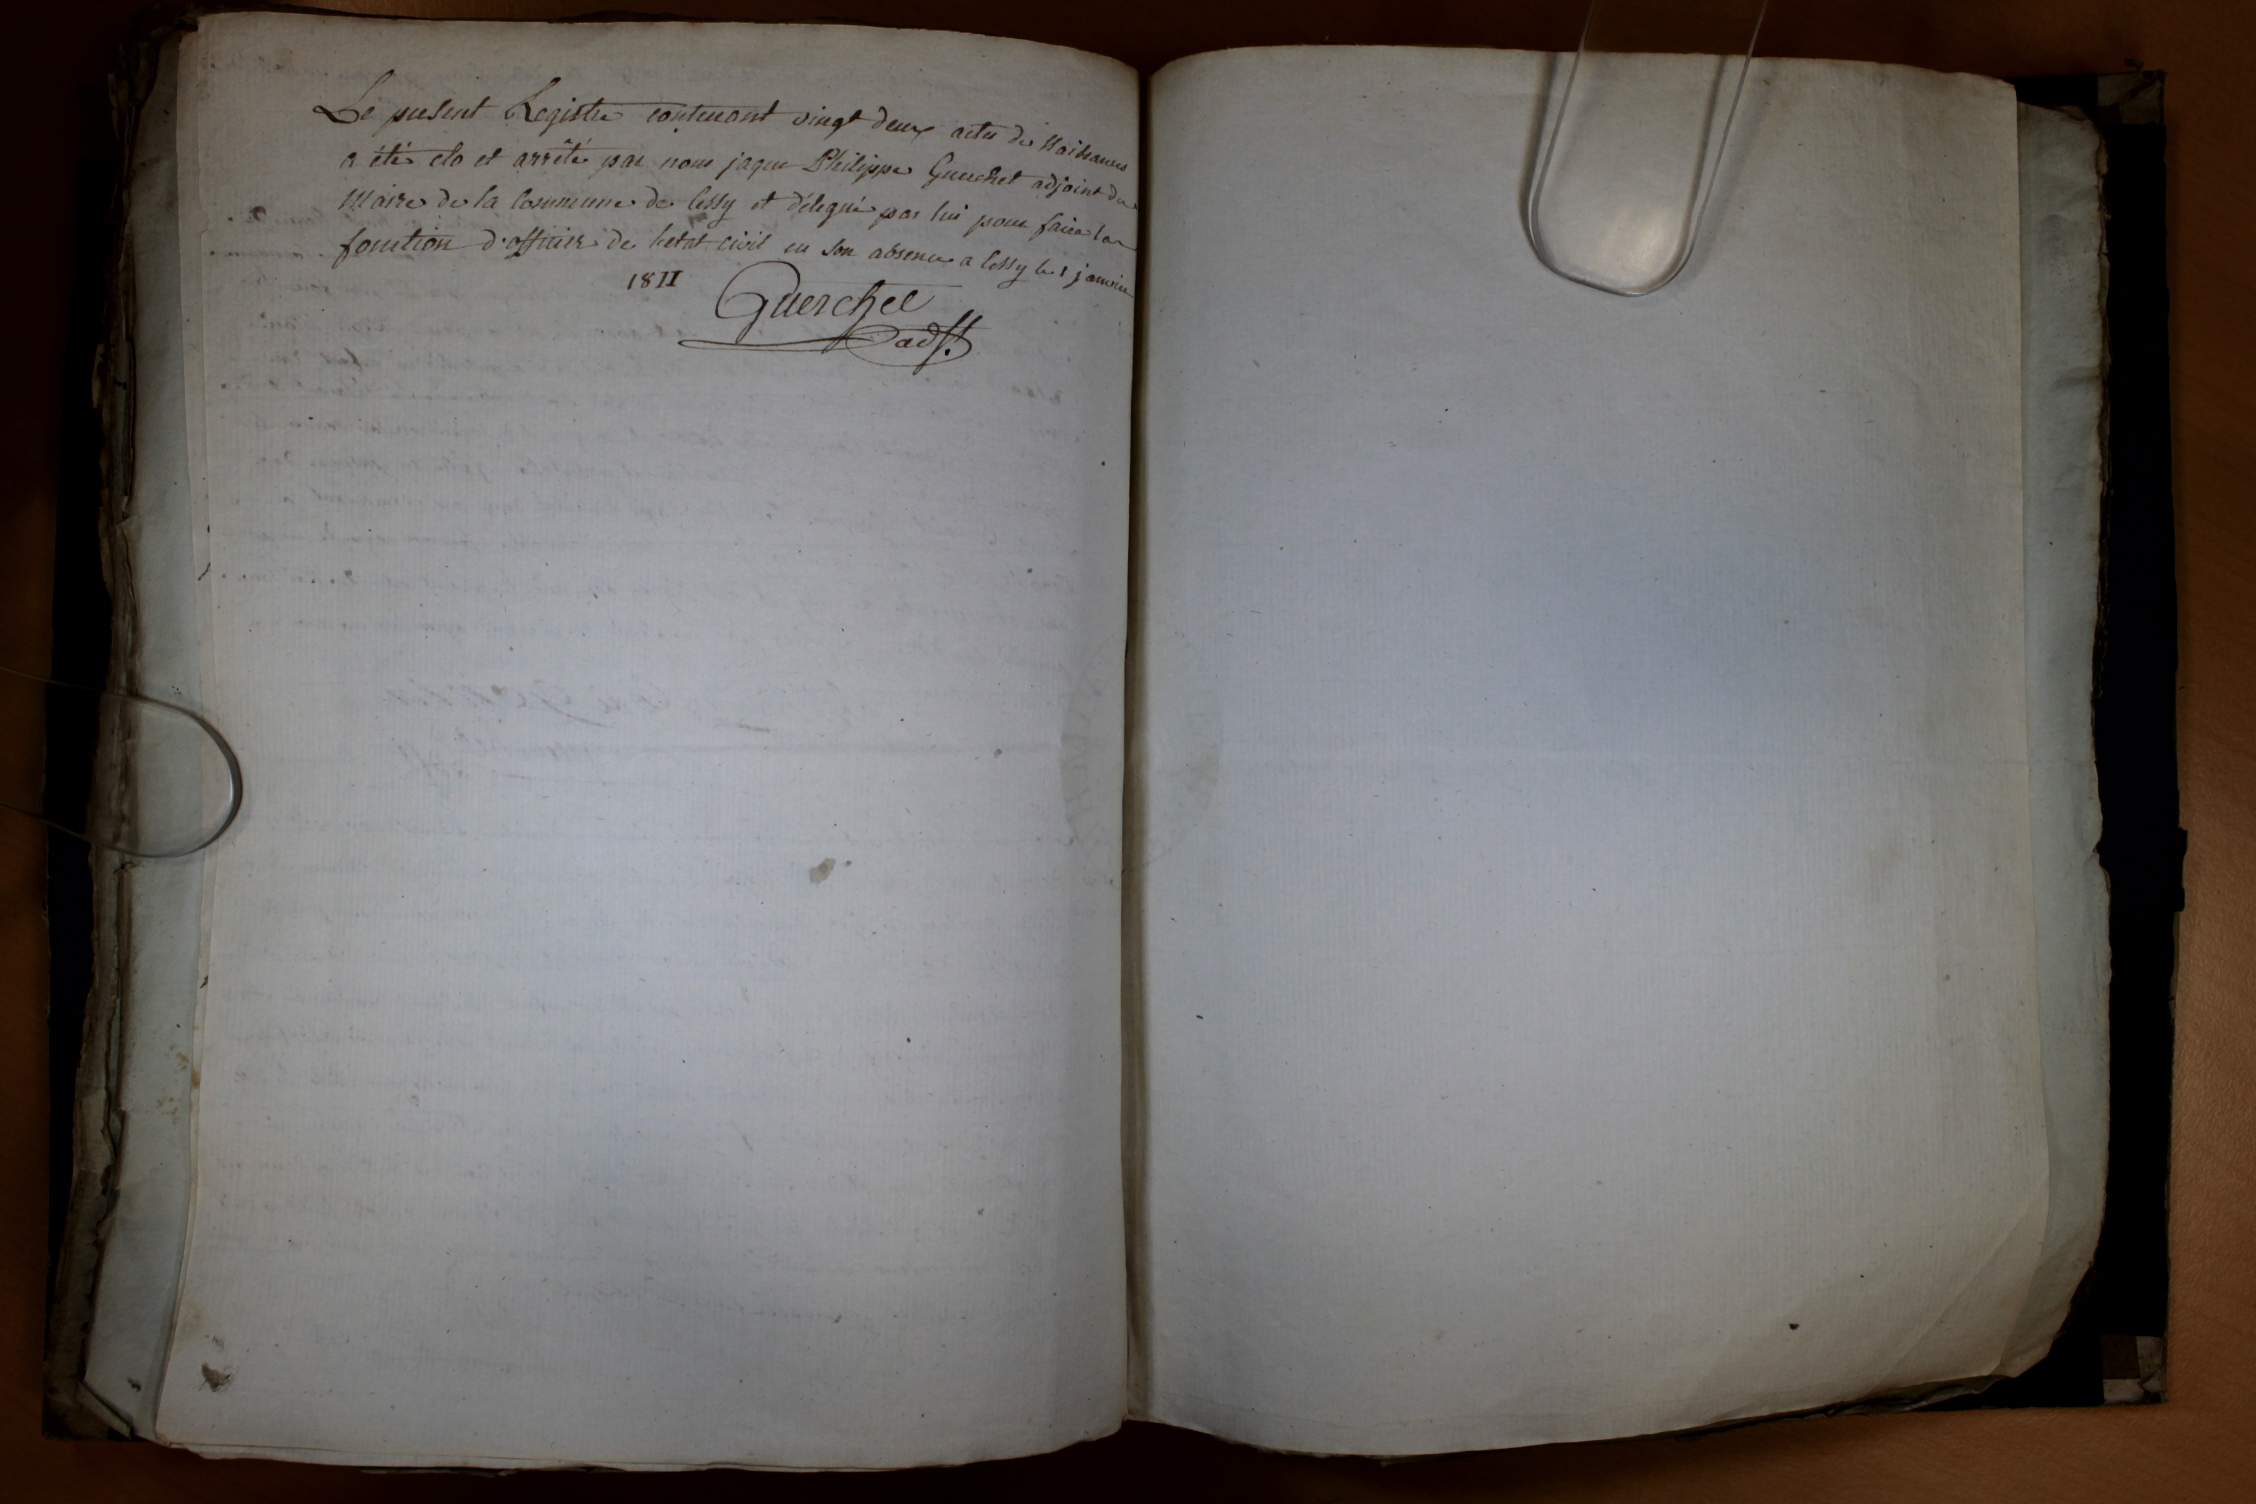 Le present Registre contenant vingt deux actes de Naissances
a été clo et arrêté par nous jaque Philippe Guerchet adjoint du
Maire de la Commune de lessy et délegué par lui pour faire la
fonction d'officier de l'etat civil en son absence a lessy le 1 janvier
1811
Guerchet
adjt.